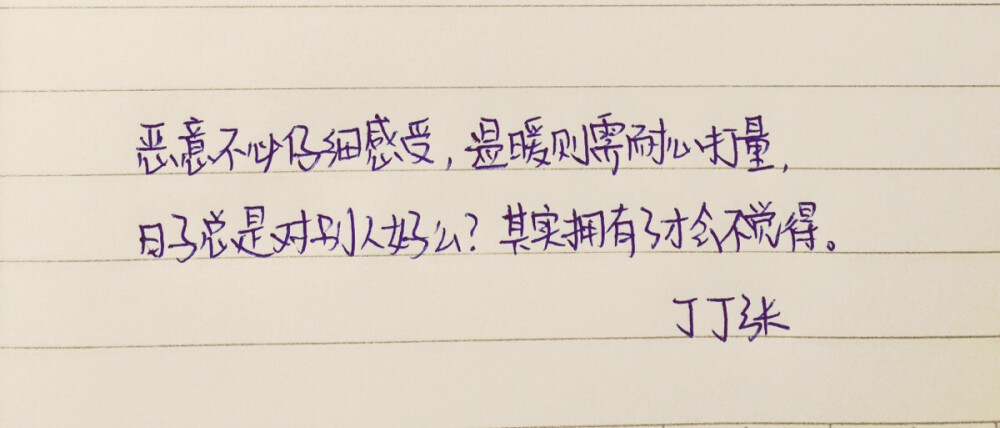 恶意不必仔细感受,温暖则需耐心打量,
日子总是对别人好么?其实拥有了才会不觉得。
丁丁张